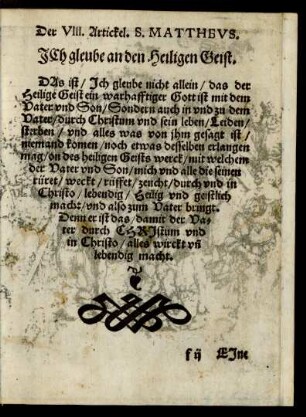 Der VIII. Artickel. S. MATTHEVS.
JCh gleube an den Heiligen Geist.
DAs ist / Jch gleube nicht allein / das der
Heilige Geist ein warhafftiger Gott ist mit dem
Vater vnd Son / Sondern auch in vnd zu dem
Vater / durch Christum vnd sein leben / Leiden /
sterben / vnd alles was von jhm gesagt ist /
niemand komen / noch etwas desselben erlangen
mag / on des heiligen Geists werck / mit welchem
der Vater vnd Son / mich vnd alle die seinen
rüret / weckt / rüffet / zeucht / durch vnd in
Christo / lebendig / Heilig vnd geistlich
macht / vnd also zum Vater bringt.
Denn er ist das / damit der Va-
ter durch CHRJstum vnd
in Christo / alles wirckt vñ
lebendig macht.
f ij EJne